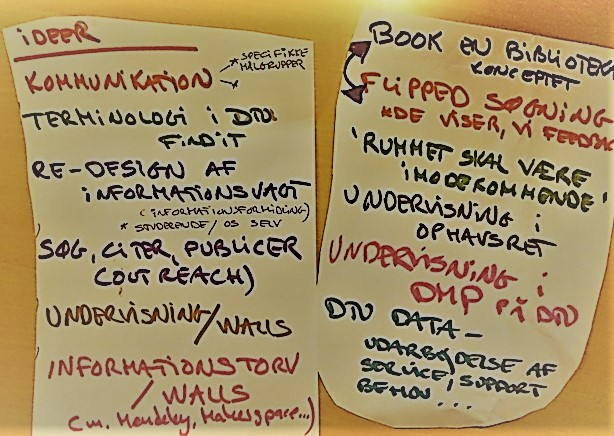 IDEER
KOMMUNIKATION
* SPECIFIKKE
MÅLGRUPPER
*
TERMINOLOGI I DTU
FINDIT
RE-DESIGN AF
INFORMATIONSVAGT
(INFORMATIONSFORMIDLING)
* STUDERENDE/OS SELV
SØG, CITER, PUBLICER
(OUTREACH)
UNDERVISNING/WALLS
INFORMATIONSTORV
/WALLS
(m. Mendeley, Makerspace...)
BOOK EN BIBLIOTEK
KONCEPTET
FLIPPED SØGNING
*DE VISER, VI FEEDBAC
'RUMMET SKAL VÆRE
IMØDEKOMMENDE'
UNDERVISNING I
OPHAVSRET
UNDERVISNING I
DMP PÅ DTU
DTU DATA –
UDARBEJDELSE AF
SERVICE, SUPPORT
BEHOV...